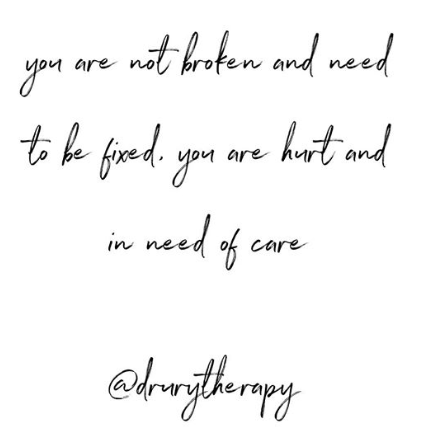 you are not broken and need
to be fixed. you are hurt and
in need of care
@drurytherapy